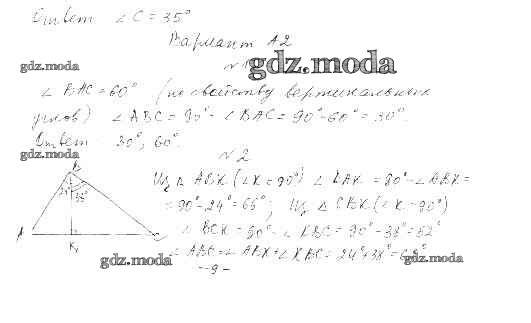 Ответ ∠C = 35°
Вариант А2
gdz.moda
№1
gdz.moda
∠BAC = 60° (по свойству вертикальных
углов) ∠ABC = 90° - ∠BAC = 90° - 60° = 30°.
Ответ 30°, 60°.
gdz.moda
№2
B
24° 38°
Из △ ABK (∠K = 90°) ∠BAK = 90° - ∠ABK =
= 90° - 24° = 66°; Из △ CBK (∠K = 90°)
A
K
∠BCK = 90° - ∠KBC = 90° - 38° = 52°
∠ABC = ∠ABK + ∠KBC = 24° + 38° = 62°
gdz.moda
gdz.moda
- 9 -